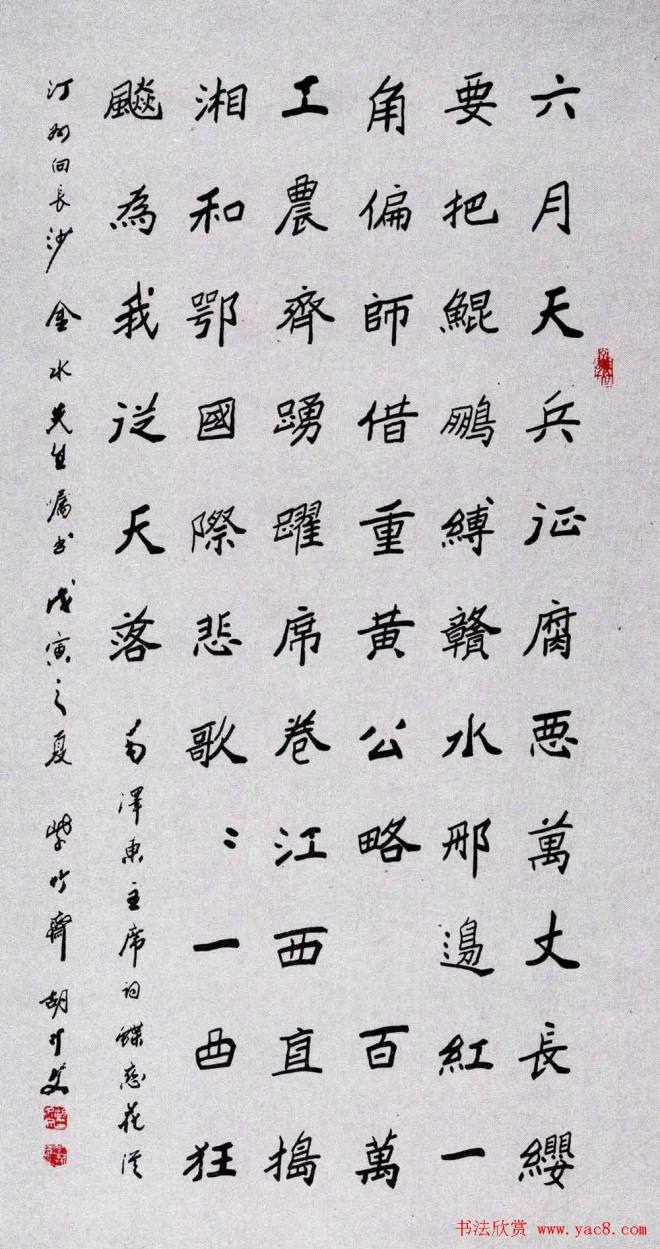 六月天兵征腐悪萬丈長纓
要把鯤鵬縛贛水那邊紅一
角偏師借重黄公略 百萬
工農齊踴躍席卷江西直搗
湘和鄂國際悲歌〻一曲狂
飈為我從天落 毛澤東主席詞蝶恋花從
汀州向長沙 金水先生嘱书 戊寅之夏 紫竹齋 胡
书法欣赏 www.yac8.com